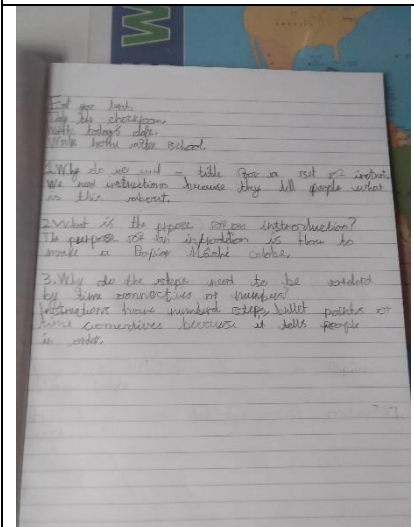 Eat your lunch.
the
today's date.
home after school.
1. Why do we need a title for a set of
We need instructions because they tell people what
is this about.
2. What is the purpose of an introduction?
The purpose of an is How to
make a Papier Mâché Globe.
3. Why do the steps need to be ordered
by time connectives or number?
Instructions have numberd steps, bullet points or
time connectives because it tells people
in order.